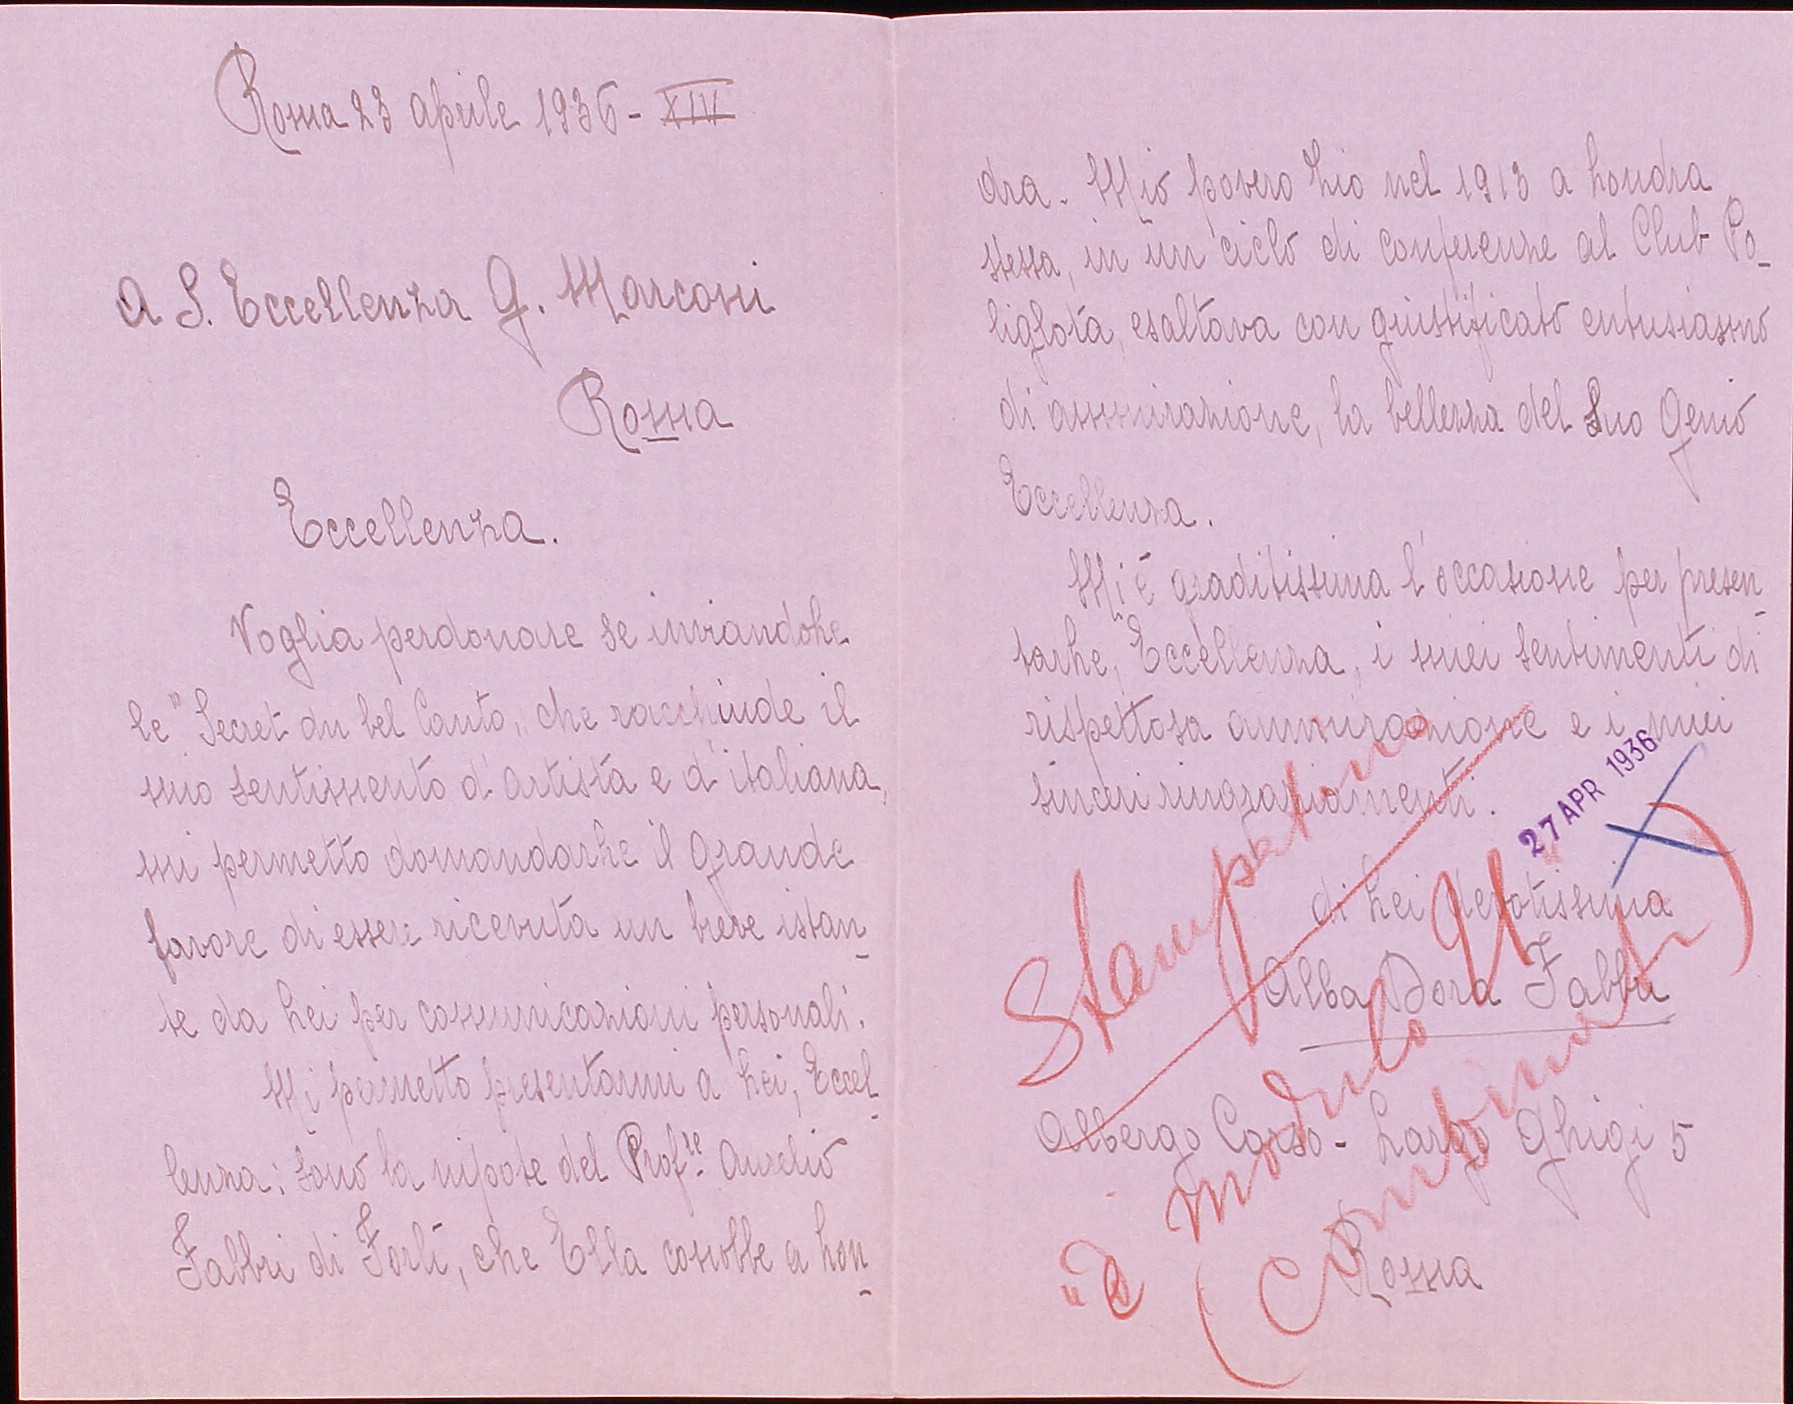 Roma 23 aprile 1936 - XIV
A S. Eccellenza G. Marconi
Roma
Eccellenza.
Voglia perdonare se inviandole
le "Secret du bel Canto,, che racchiude il
mio sentimento d'artista e d'italiana,
mi permetto domandarle il grande
favore di essere ricevuta un breve istan-
te da Lei per comunicazioni personali.
Mi permetto presentarmi a Lei, Eccel-
lenza; sono la nipote del Prof.re Aurelio
Fabbri di Forlì, che Ella conobbe a Lon-
dra. Mio povero Zio nel 1913 a Londra
stessa, in un ciclo di conferenze al Club Po-
liglota, esaltava con giustificato entusiasmo
di ammirazione, la bellezza del Suo Genio
Eccellenza.
Mi è graditissima l'occasione per presen-
tarle, Eccellenza, i miei sentimenti di
rispettosa ammirazione e i miei
sinceri ringraziamenti.
27 APR 1936
di Lei devotissima
Alba Dora Fabbri
Albergo Corso - Largo Ghigi 5
Roma
Stampatino
modulo